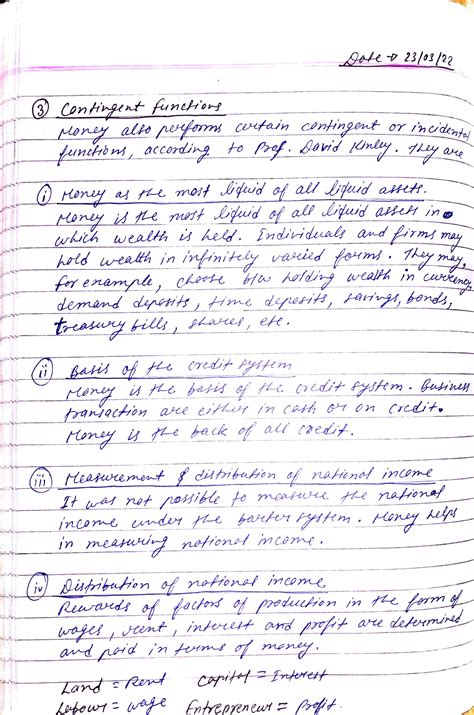 Date → 23/03/22
③ Contingent functions
Money also performs certain contingent or incidental
functions, according to Prof. David Kinley. They are
(i) Money as the most liquid of all liquid assets.
Money is the most liquid of all liquid assets in
which wealth is held. Individuals and firms may
hold wealth in infinitely varied forms. They may,
for example, choose b/w holding wealth in currency,
demand deposits, time deposits, savings, bonds,
treasury bills, shares, etc.
(ii) Basis of the credit system
Money is the basis of the credit system. Business
transaction are either in cash or on credit.
Money is the back of all credit.
(iii) Measurement & distribution of national income
It was not possible to measure the national
income under the barter system. Money helps
in measuring national income.
(iv) Distribution of national income
Rewards of factors of production in the form of
wages, rent, interest and profit are determined
and paid in terms of money.
Land = Rent    Capital = Interest
Labour = wage    Entrepreneur = Profit.